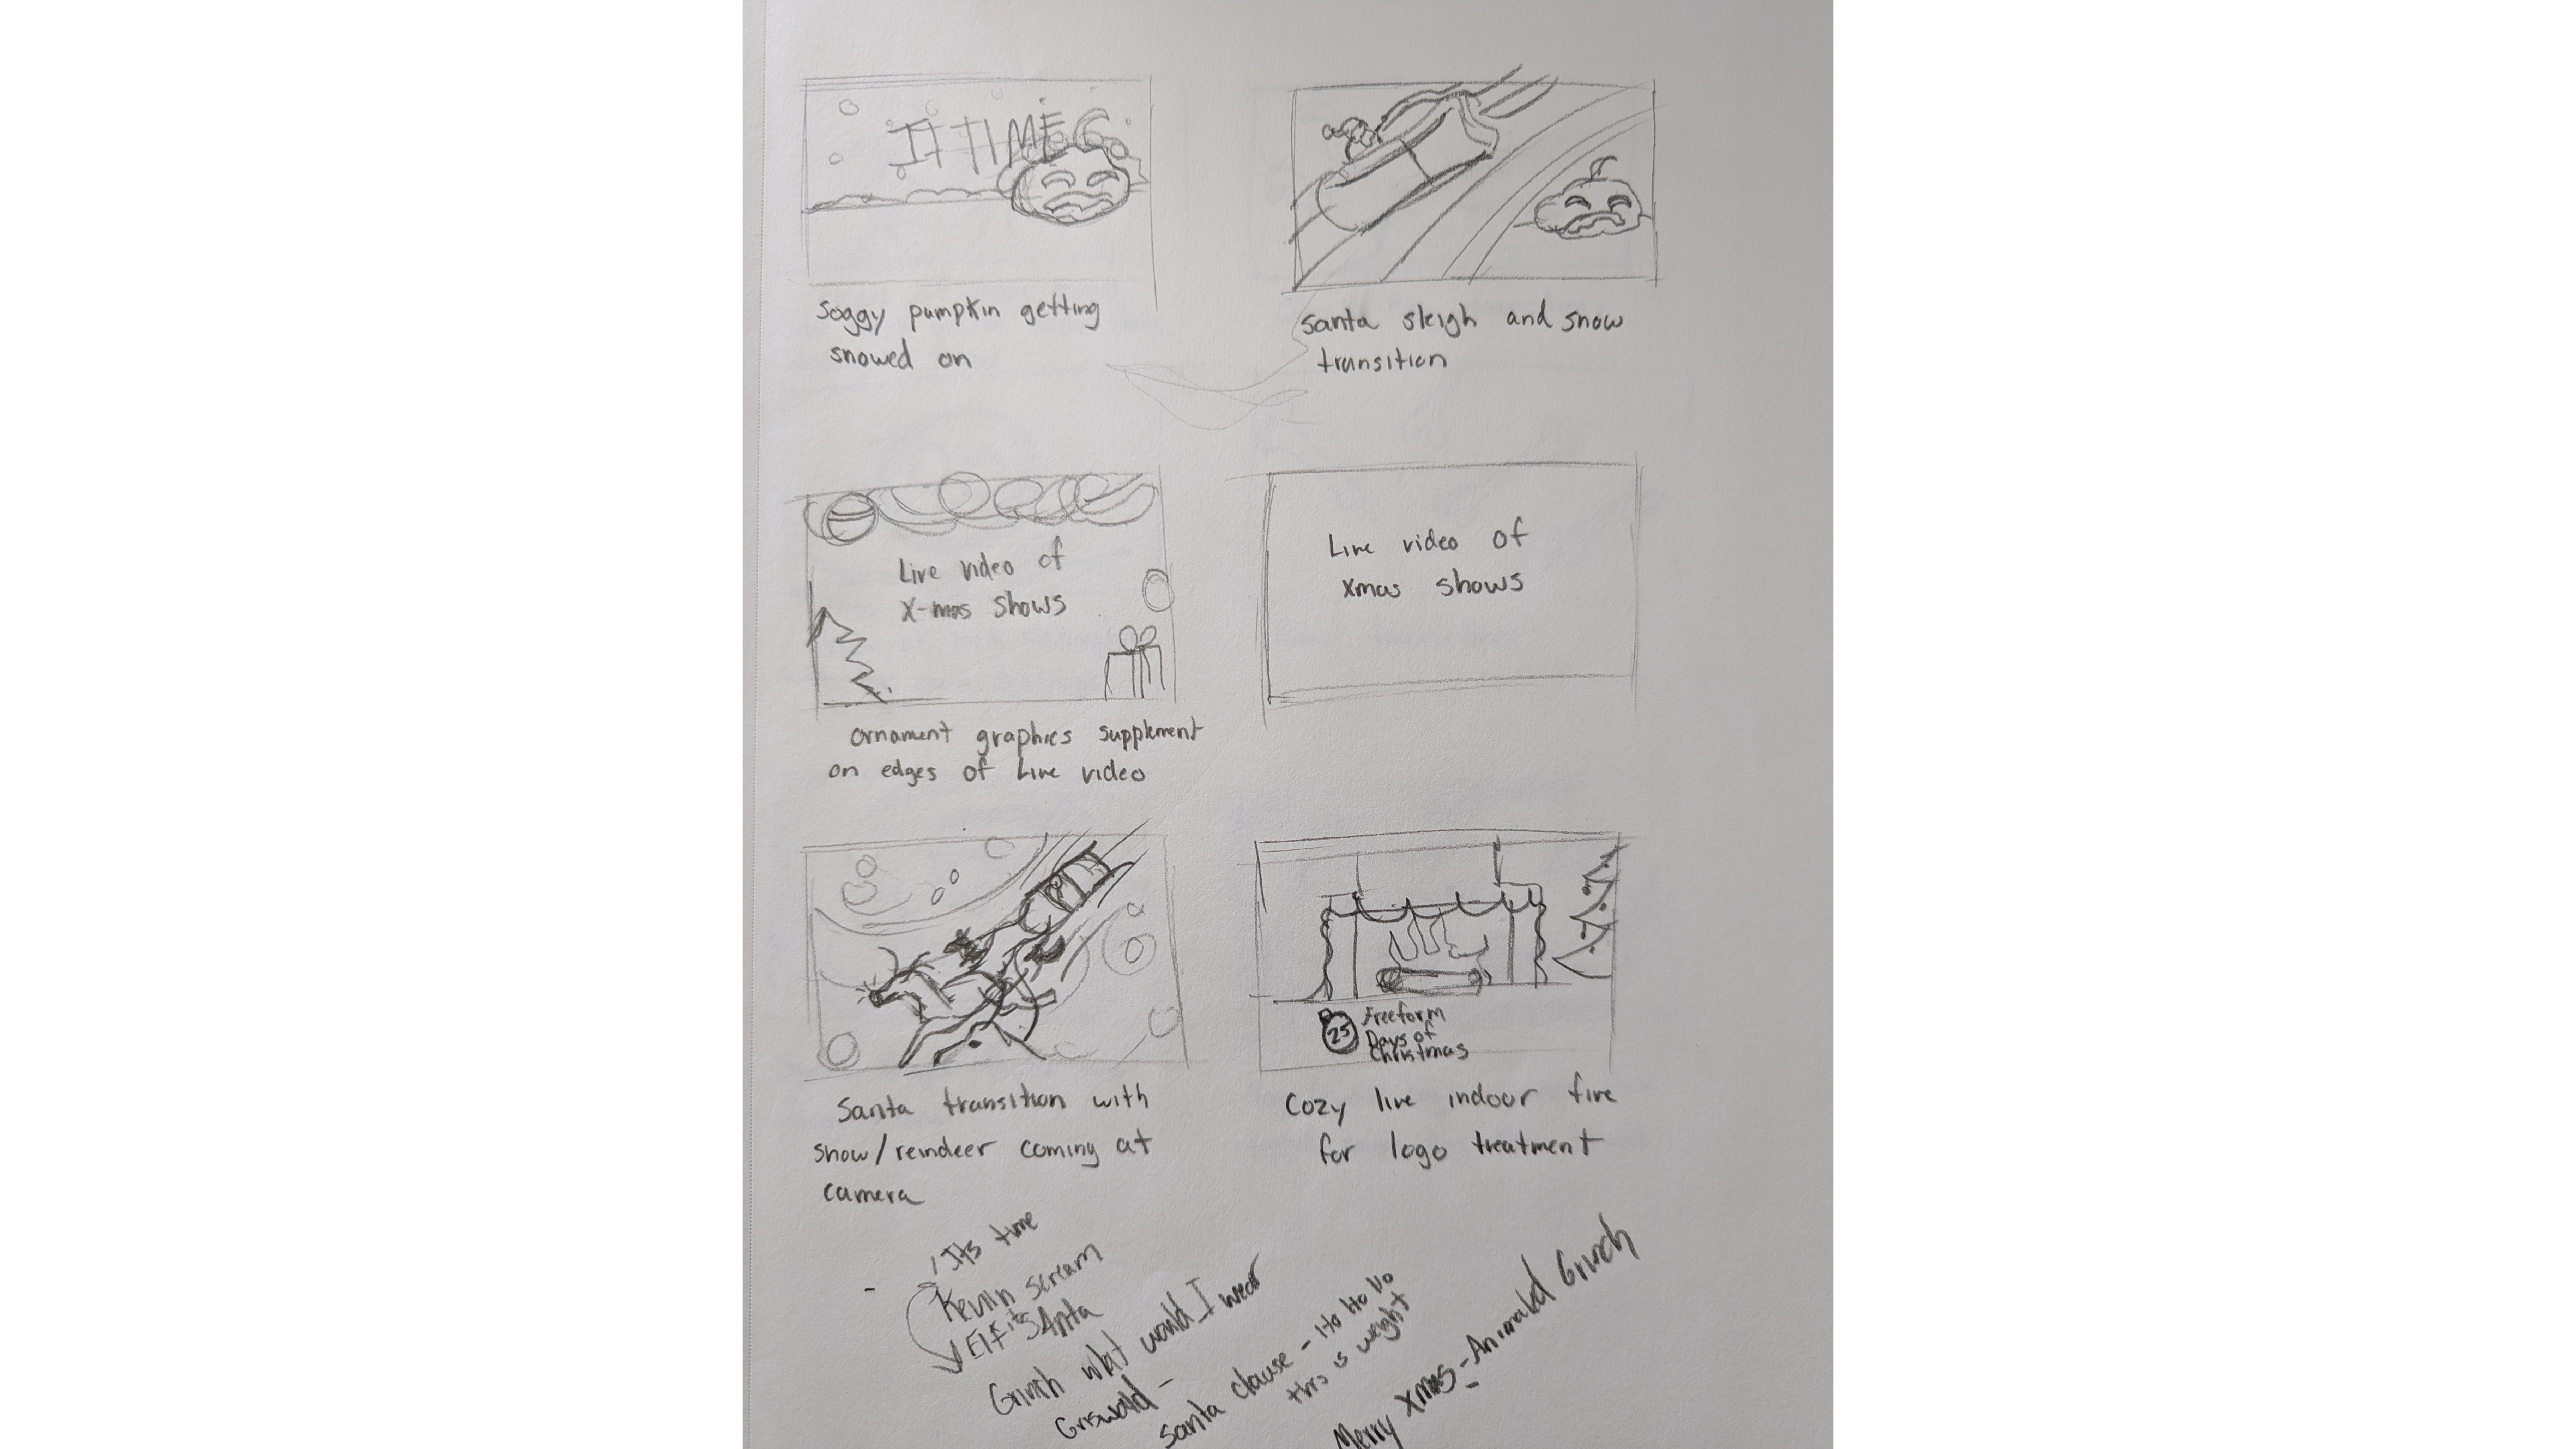 IT TIME
Soggy pumpkin getting
snowed on
Santa sleigh and snow
transition
Live video of
X-mas shows
ornament graphics supplement
on edges of Live video
Live video of
Xmas shows
Santa transition with
snow/reindeer coming at
camera
25 Freeform
Days of
Christmas
Cozy live indoor fire
for logo treatment
Its time
Kevin scream
Elf its SAnta
Grinch what would I wear
Griswold -
Santa clause - Ho Ho Ho
this is weight
Merry Xmas - Animald Grinch